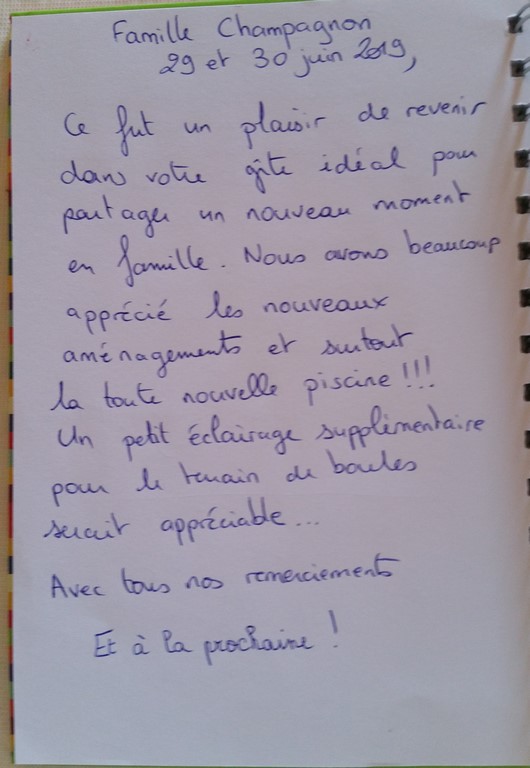 Famille Champagnon
29 et 30 juin 2019,
Ce fut un plaisir de revenir
dans votre gîte idéal pour
partager un nouveau moment
en famille. Nous avons beaucoup
apprécié les nouveaux
aménagements et surtout
la toute nouvelle piscine !!!
Un petit éclairage supplémentaire
pour le terrain de boules
serait appréciable...
Avec tous nos remerciements
Et à la prochaine !